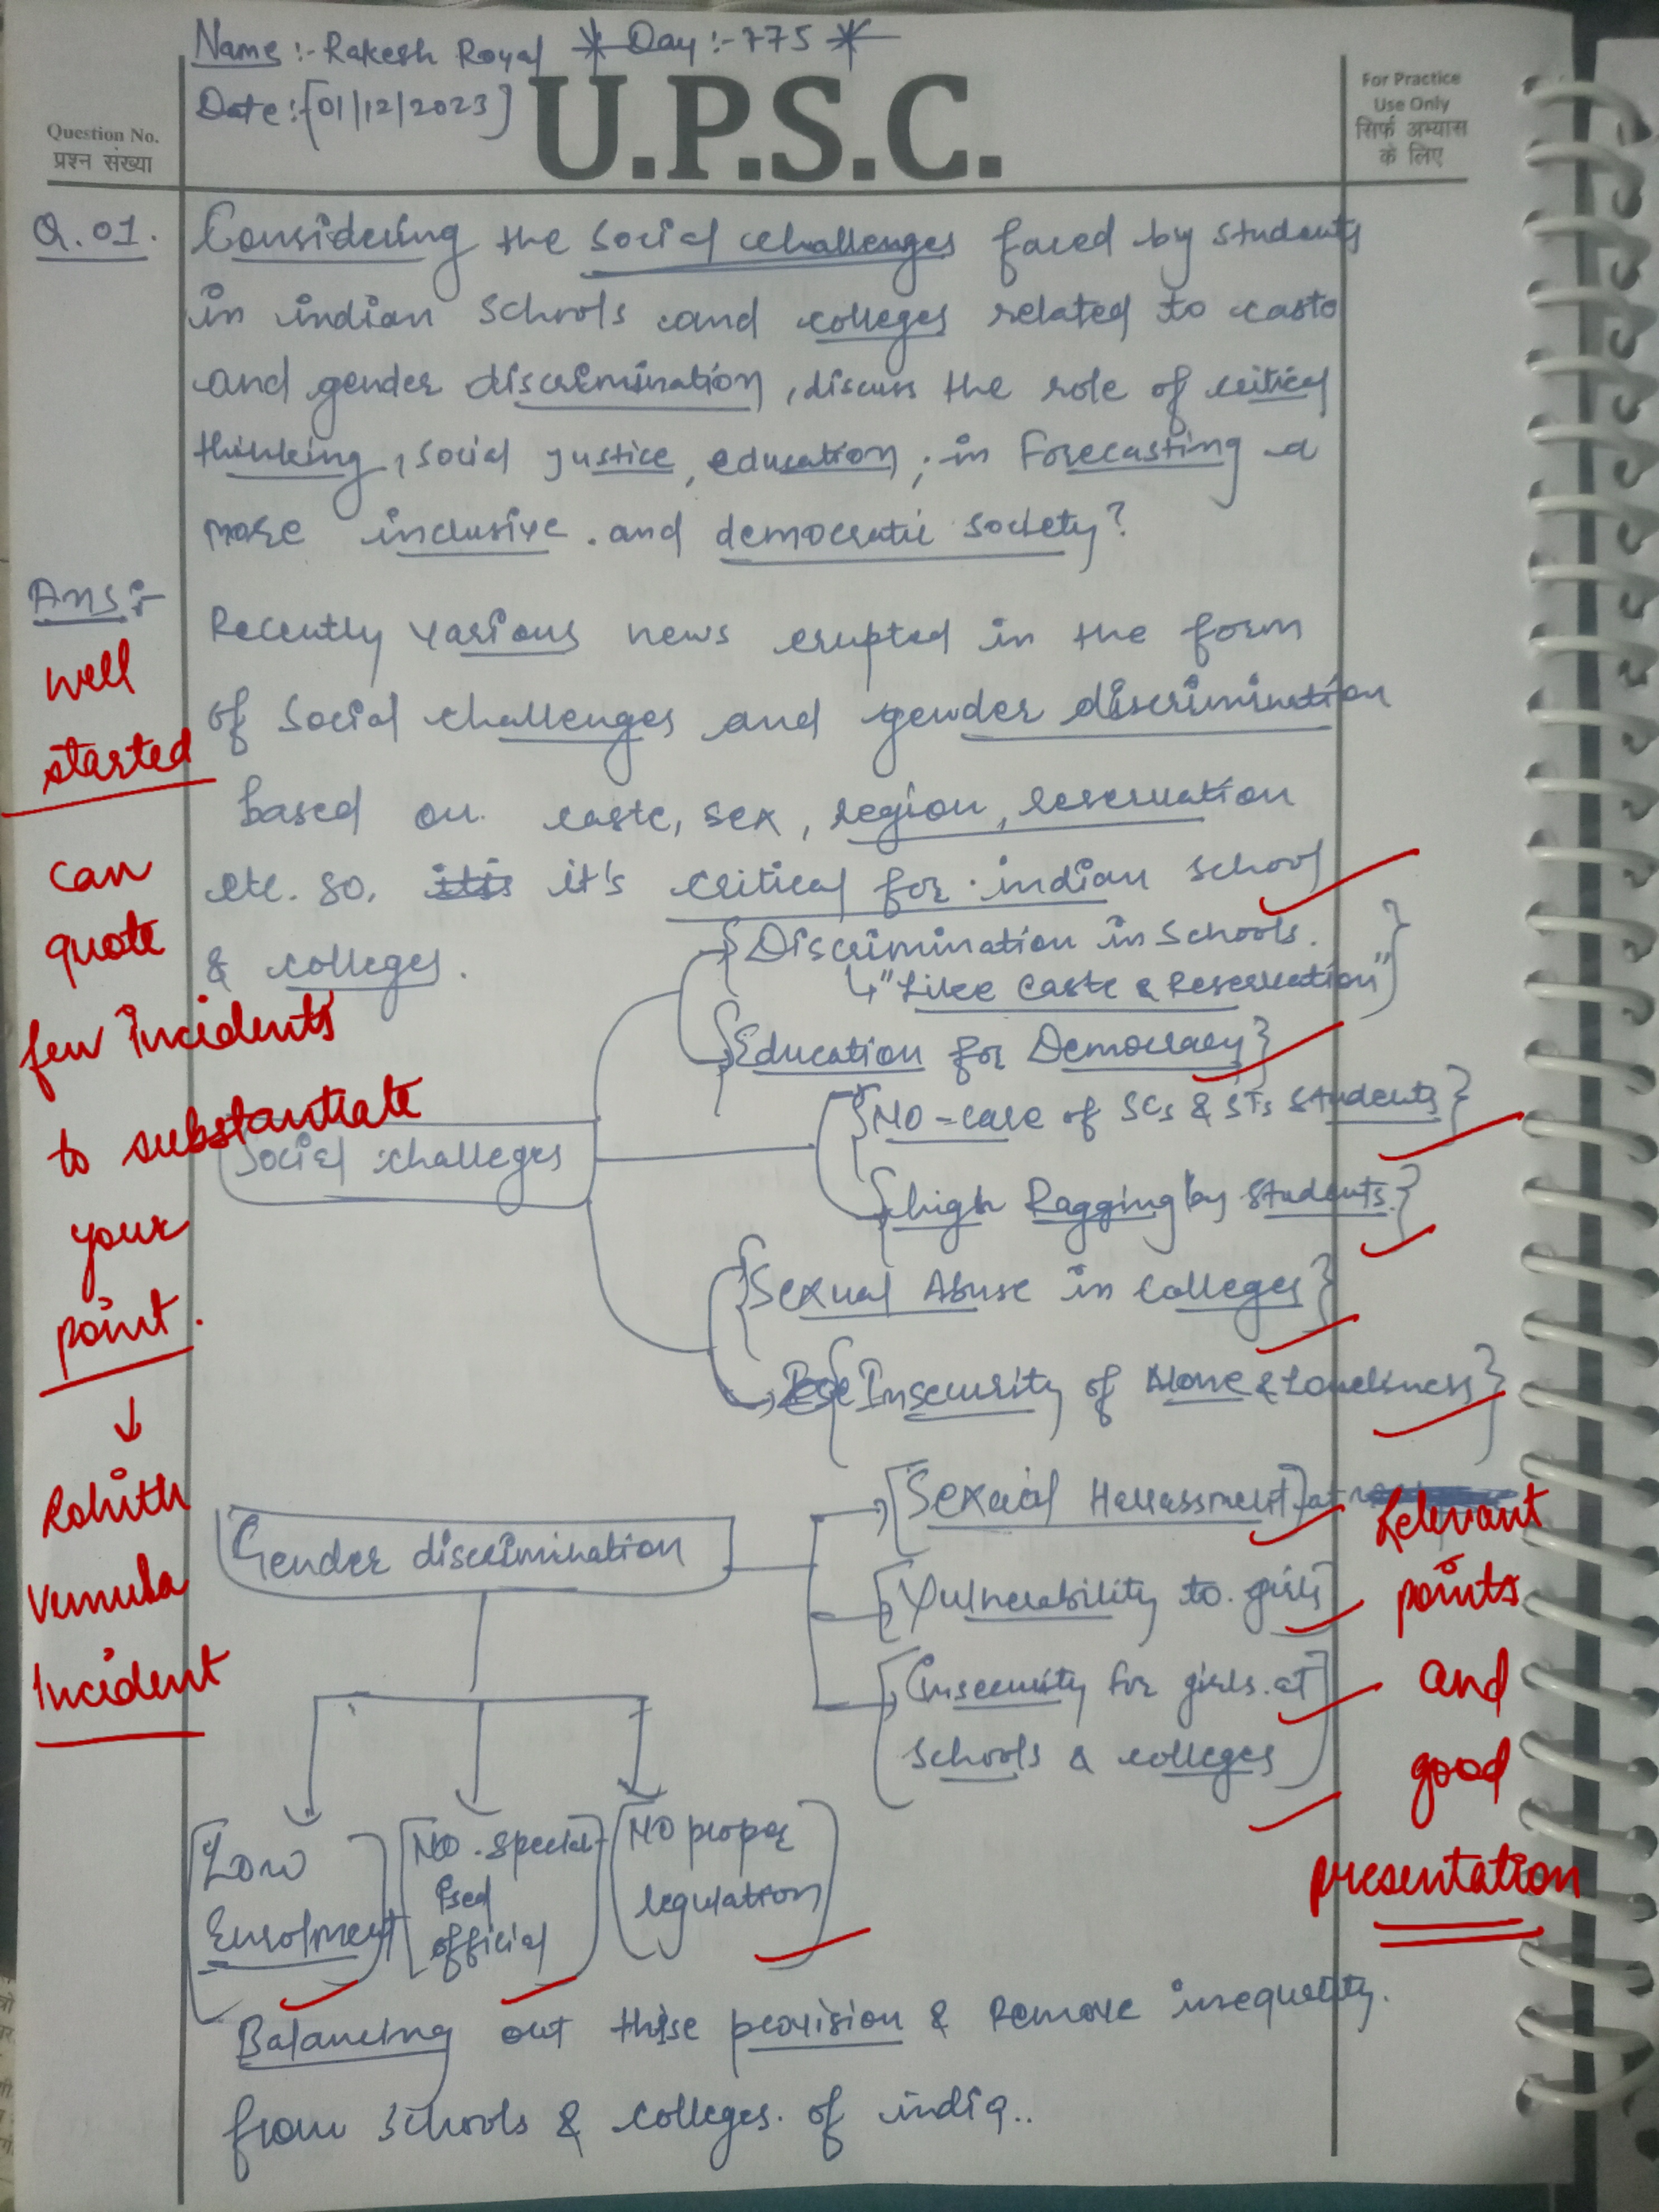 Name :- Rakesh Royal * Day :- 775 *
Date :- [01/12/2023]
U.P.S.C.
For Practice
Use Only
सिर्फ अभ्यास
के लिए
Question No.
प्रश्न संख्या
Q. 01. Considering the social challenges faced by students
in indian schools and colleges related to caste
and gender discrimination, discuss the role of critical
thinking, social justice, education, in forecasting a
more inclusive and democratic society?
Ans:-
Recently various news erupted in the form
of social challenges and gender discrimination
based on caste, sex, region, reservation
etc. so, it's critical for indian school
& colleges.
well
started
can
quote
few incidents
to substantiate
your
point.
↓
Rohith
Vemula
Incident
Social challeges
Discrimination in schools.
↳ "Like Caste & Reservation"
Education for Democracy
NO-care of SCs & STs students
high Ragging by students.
Sexual Abuse in Colleges
Insecurity of Alone & Loneliness
Gender discrimination
Sexual Harassment at
Vulnerability to girls
Insecurity for girls at
schools & colleges
Relevant
points
and
good
presentation
Low
Enrolment
NO special-
ised
official
NO proper
regulation
Balancing out these provision & Remove inequality.
from schools & colleges. of india..